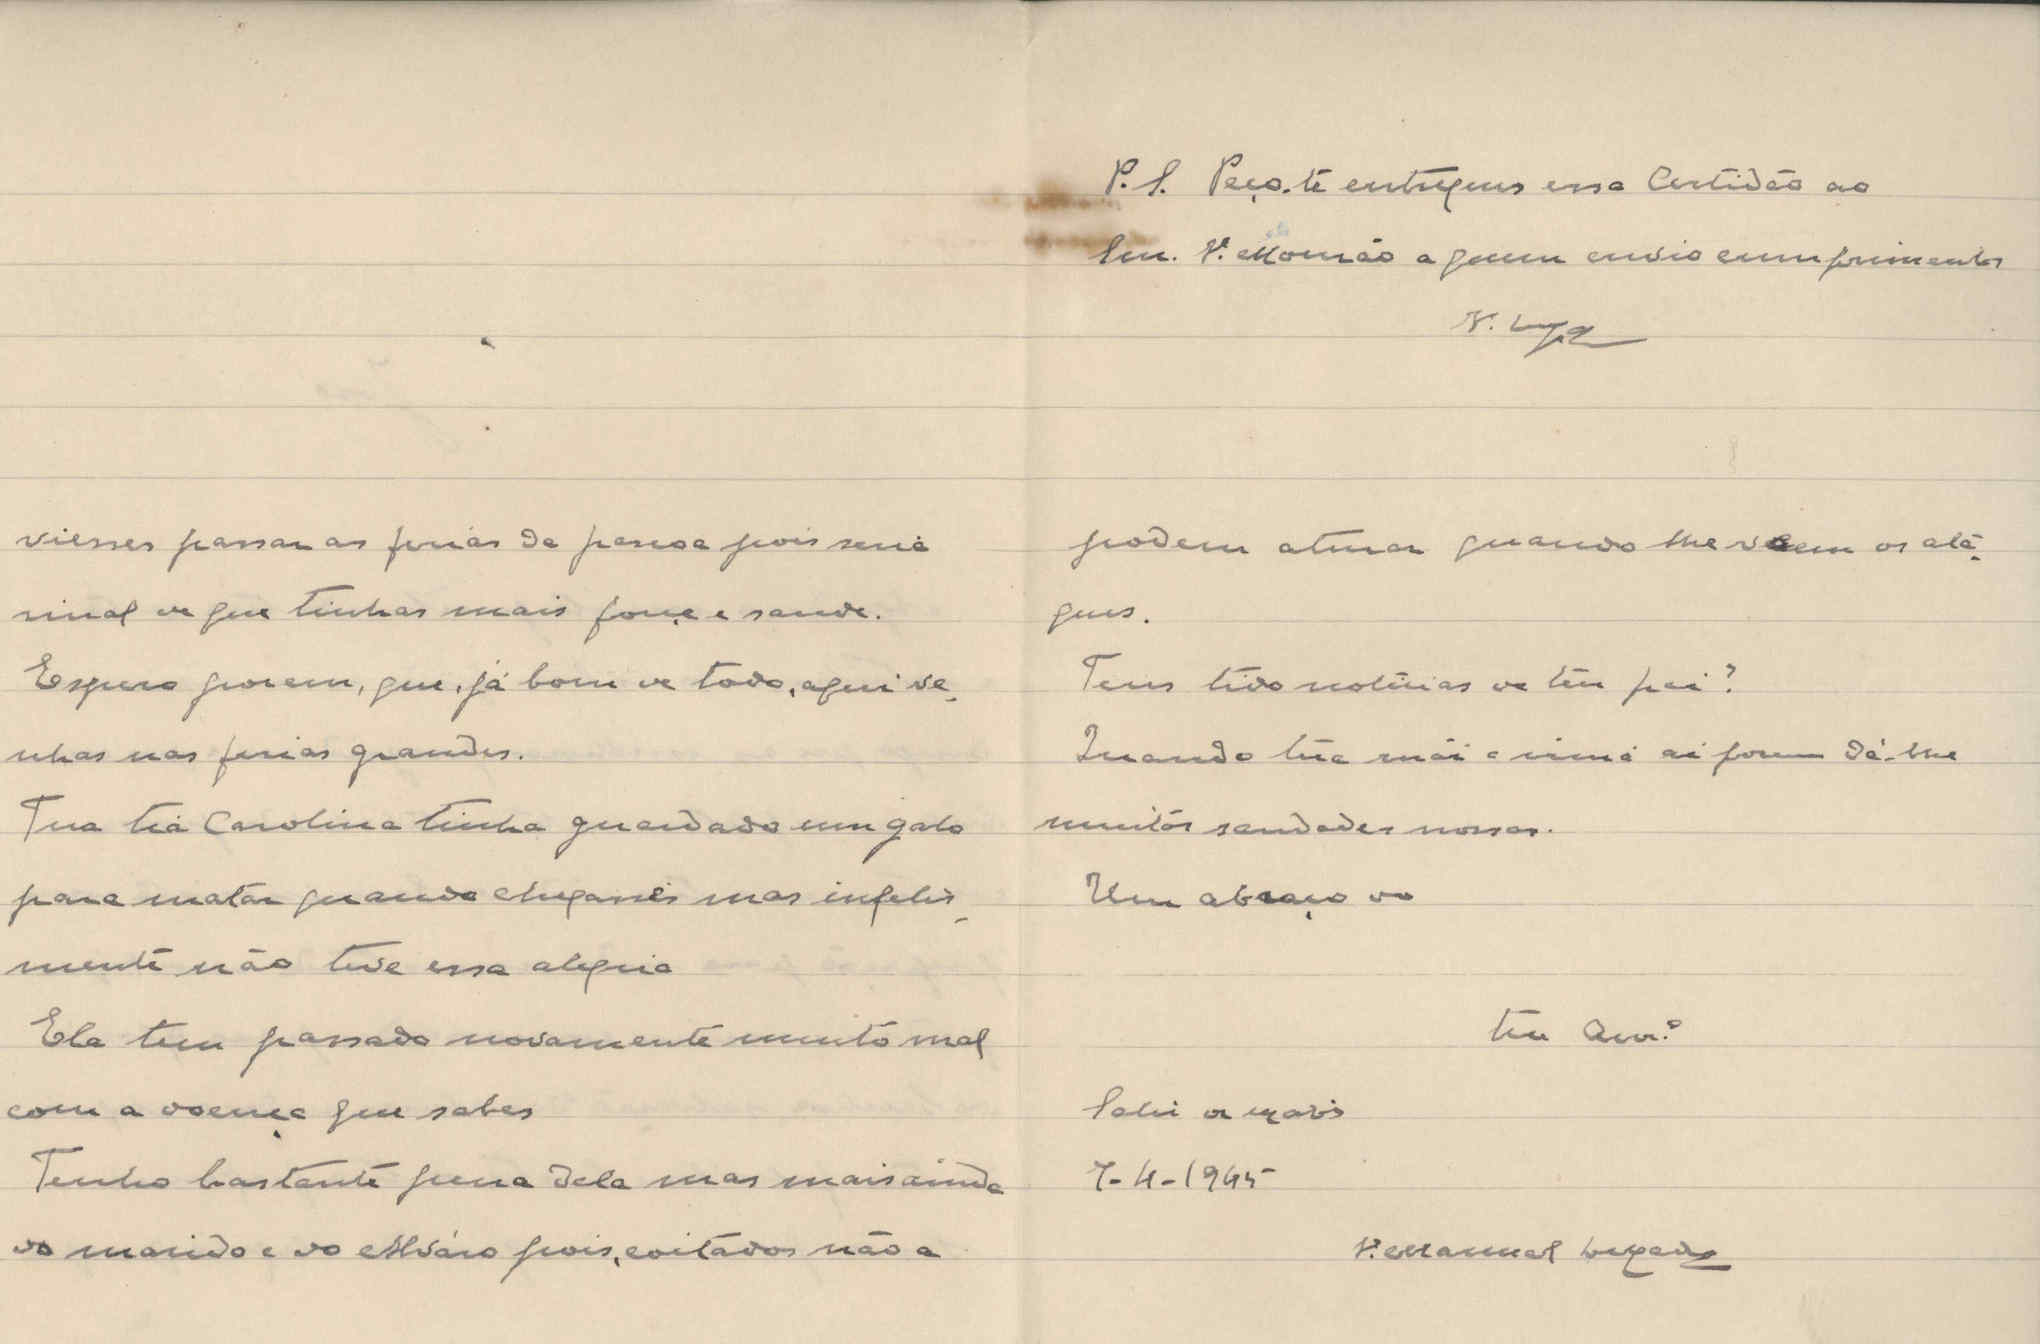 viesses passar as ferias da pascoa pois seria
sinal de que tinhas mais força e saude.
Espero porem, que, já bom de todo, aqui ve-
nhas nas ferias grandes.
Tua tia Carolina tinha guardado um galo
para matar quando chegasses mas infeliz-
mente não teve essa alegria
Ela tem passado novamente muito mal
com a doença que sabes
Tenho bastante pena dela mas mais ainda
do marido e do Alváro pois, coitados não a
P.S. Peço-te entregues essa Certidão ao
Snr. P. Mourão a quem envio cumprimentos
podem aturar quando lhe veem os atá-
ques.
Tens tido noticias de teu pai?
Quando tua mãi e irmã ai forem dá-lhe
muitas saudades nossas.
Um abraço do
teu Am.º
7-4-1945
P. Manuel